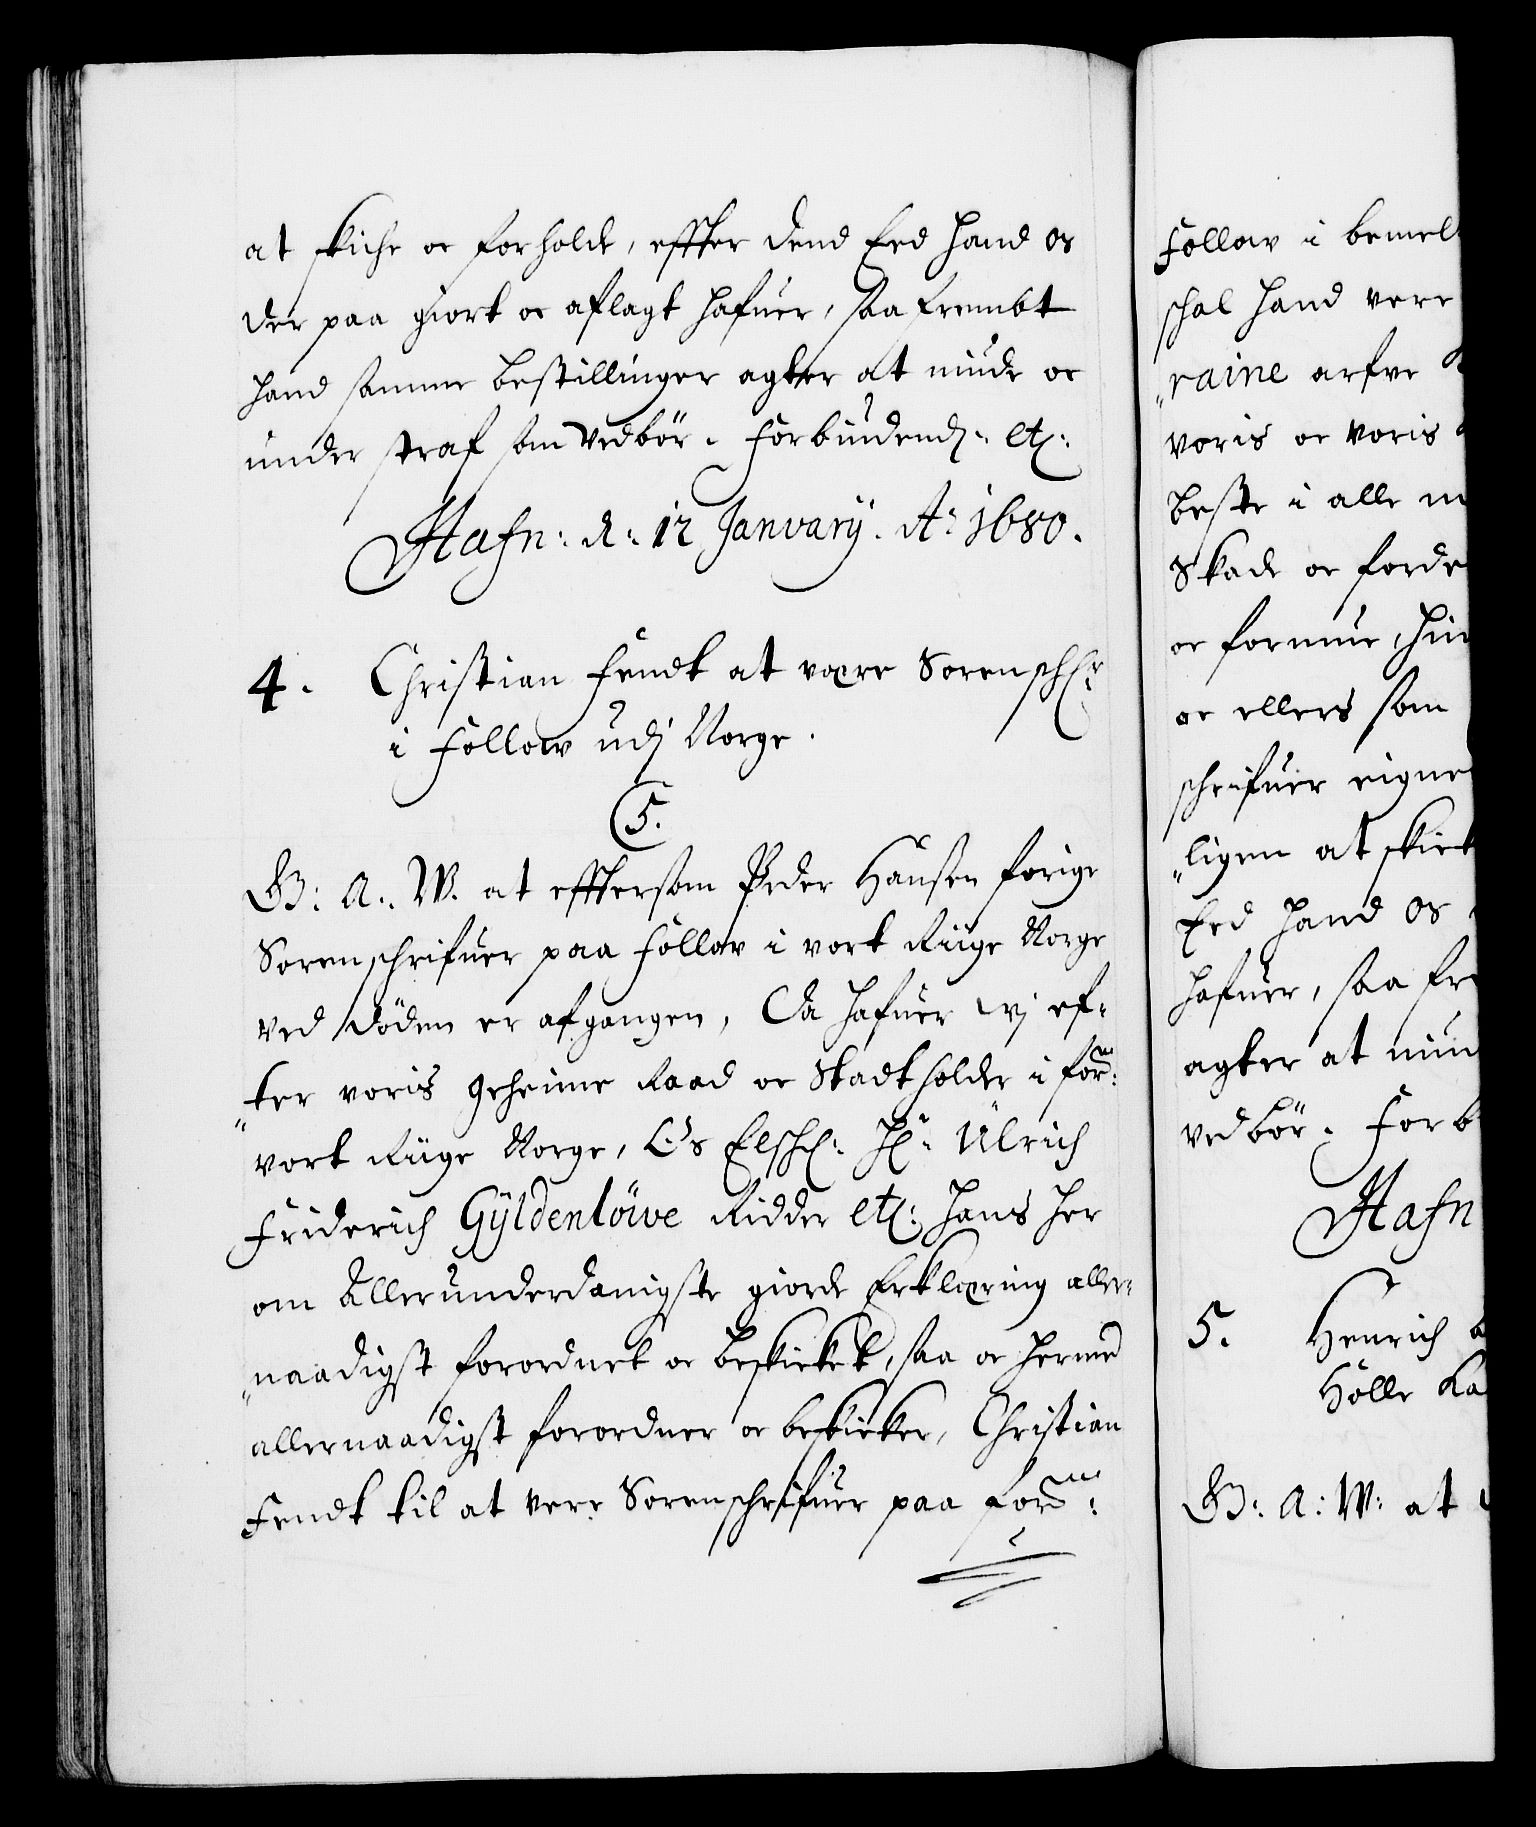 at skiche oc forholde, effter dend Eed hand os
der paa giort oc aflagt hafuer, saa frembt
hand samme bestillinger agter at niude oc
under straf som vedbör. Forbiudend: etc:
Hafn: d: 12 January. Ao 1680.
4. Christian Fendt at være Sorenschr:
i Follow udj Norge.
5.
G: A: W. at efftersom Peder Hansen forige
Sorenschrifuer paa Follow i vort Riige Norge
ved döden er afgangen, Da hafuer wj ef-
ter voris geheime Raad oc Stadtholder i for:ne
vort Riige Norge, Os Elschl: Hr: Ulrich
Friderich Gÿldenlöwe Ridder etc: hans her
om Allerunderdanigste giorde Erklæring aller-
naadigst forordnet oc beskicket, saa oc hermed
allernaadigst forordner oc beskicker, Christian
Fendt til at vere Sorenschrifuer paa for:ne
Follow i bemel
schal hand vere
raine arfve
voris oc voris
beste i alle m
Skade oc forde
oc formue, hin
oc ellers som
schrifuer eigne
ligen at skick
Eed hand os
hafuer, saa fr
agter at niud
vedbör. Forb
Hafn
5. Henrich
Hölle Ra
G: A: W: at